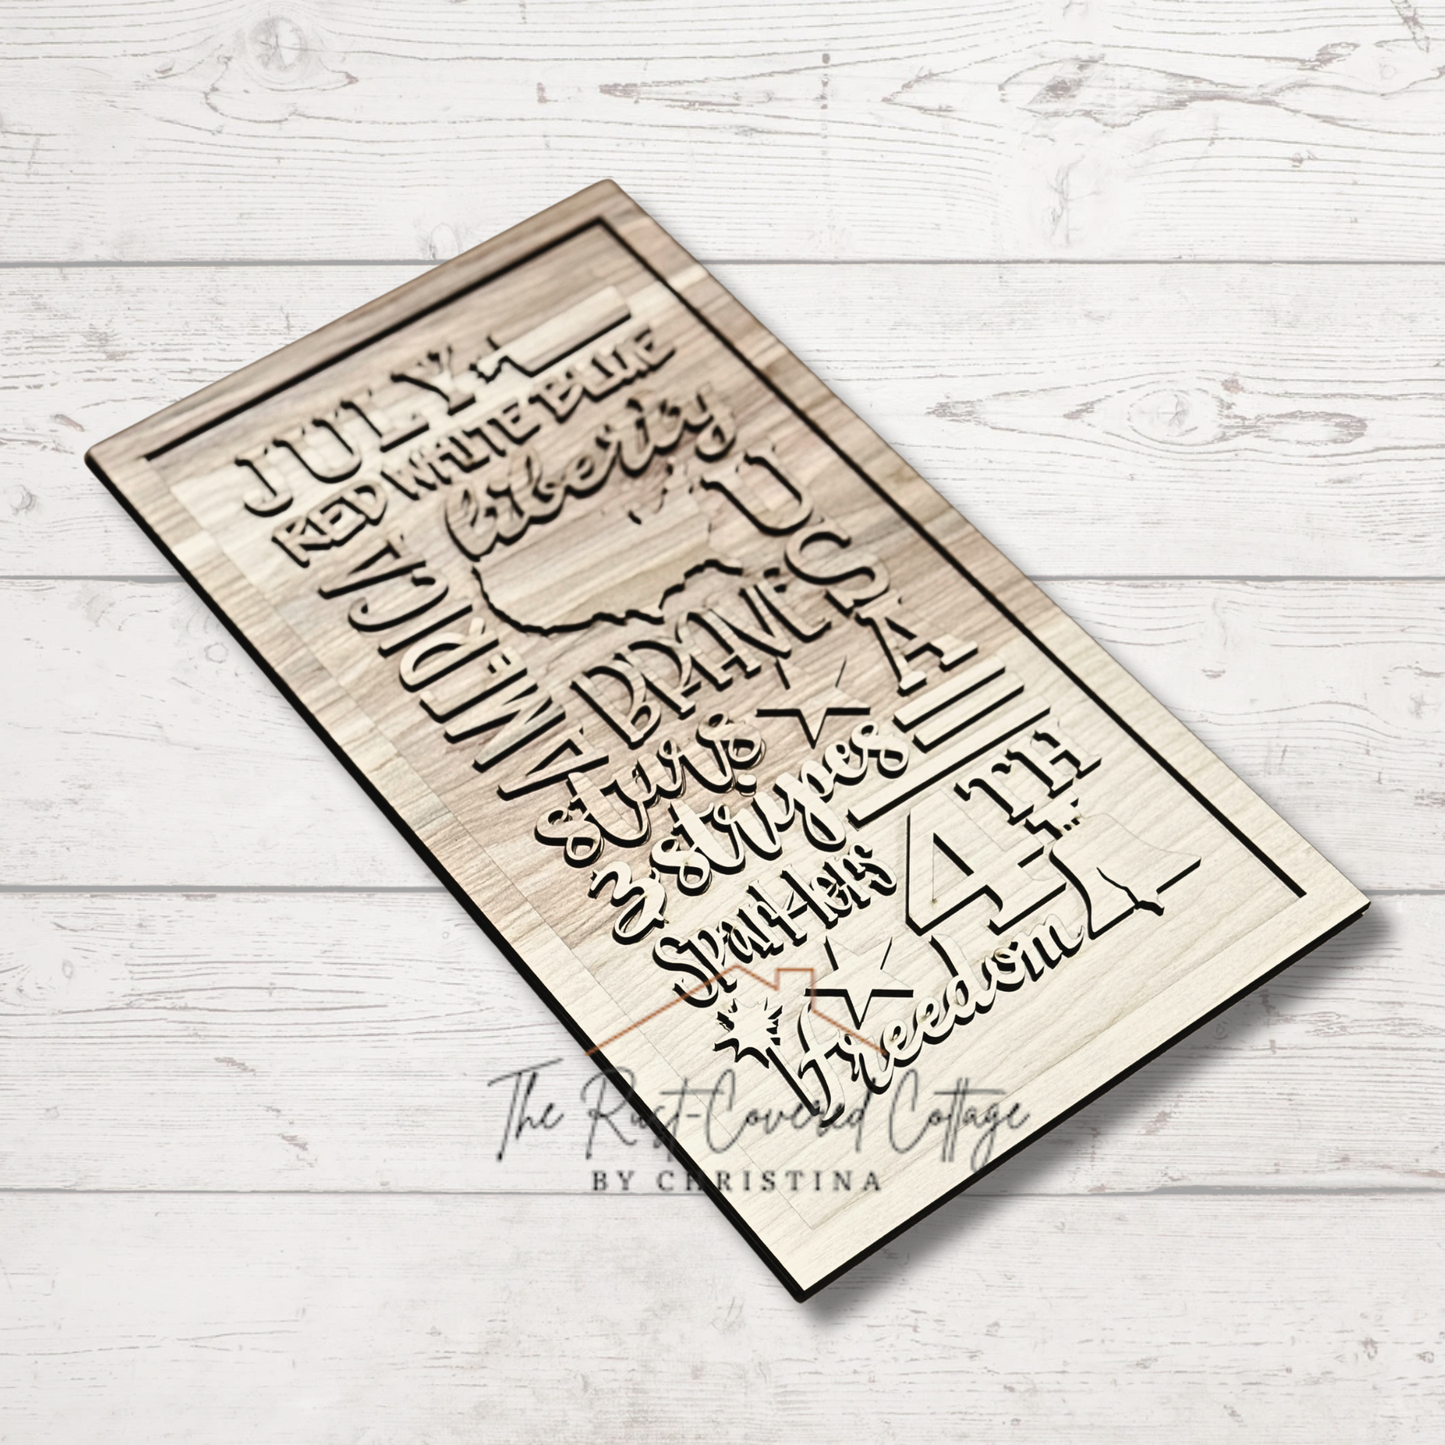 JULY
RED WHITE BLUE
liberty
USA
AMERICA
BRAVE
stars
& stripes
4TH
Sparklers
freedom
The Rust-Covered Cottage
BY CHRISTINA